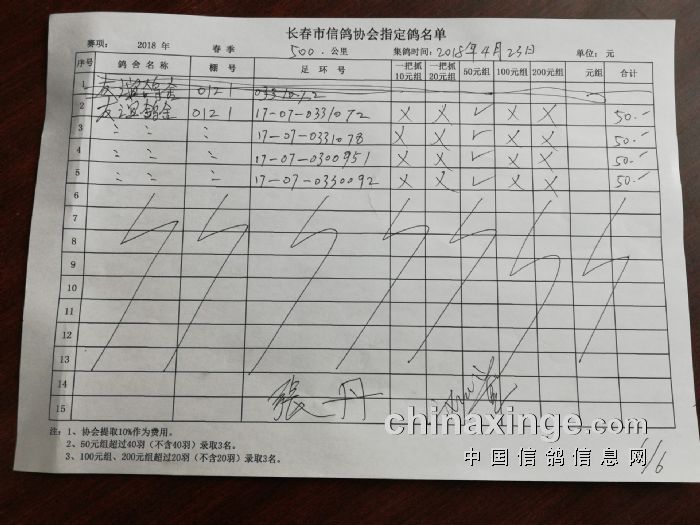 长春市信鸽协会指定鸽名单
赛项: 2018 年 春 季 500 . 公里 集鸽时间: 2018年4月23日 单位: 元
序号 鸽 舍 名 称 棚 号 足 环 号 一把抓10元组 一把抓20元组 50元组 100元组 200元组 元组 合计
1 0121
2 友谊鸽舍 0121 17-07-0331072 X X ✓ X X 50.-
3 〃 〃 〃 17-07-0331078 X X ✓ X X 50.-
4 〃 〃 〃 17-07-0300951 X X ✓ X X 50.-
5 〃 〃 〃 17-07-0330092 X X ✓ X X 50.-
6
7
8
9
10
11
12
13
14
15
张丹
注: 1、协会提取10%作为费用。
2、50元组超过40羽(不含40羽)录取3名。
3、100元组、200元组超过20羽(不含20羽)录取3名。
1/6
chinaxinge.com
中国信鸽信息网